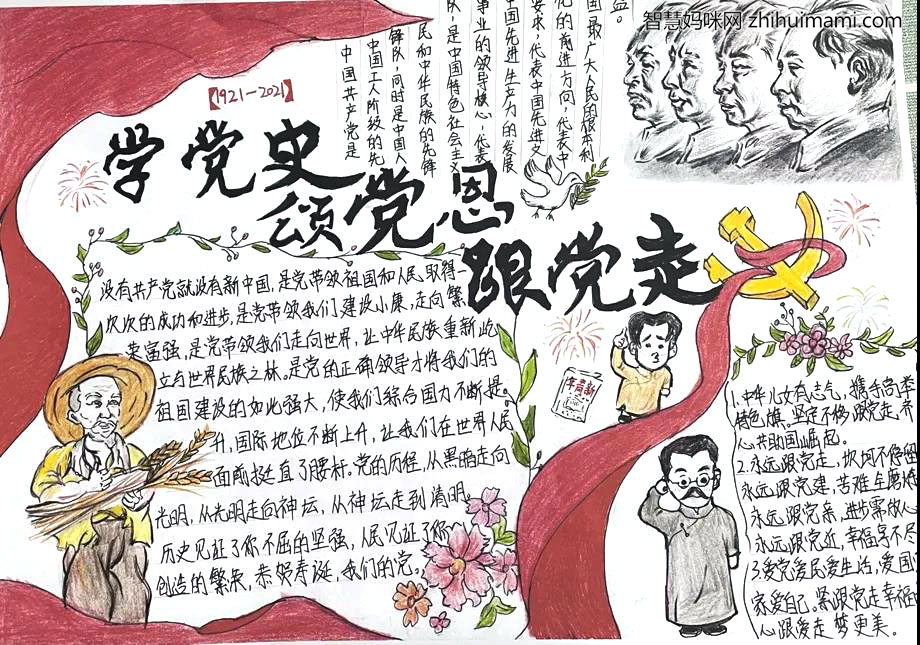 智慧妈咪网 zhihuimami.com
【1921-2021】
学党史
颂党恩
跟党走
中国共产党是
中国工人阶级的先
锋队,同时是中国人
民和中华民族的先锋
队,是中国特色社会主义
事业的领导核心,代表
中国先进生产力的发展
要求,代表中国先进文
化的前进方向,代表中
国最广大人民的根本利
益。
没有共产党就没有新中国,是党带领祖国和人民取得一
次次的成功和进步,是党带领我们建设小康,走向繁
荣富强,是党带领我们走向世界,让中华民族重新屹
立与世界民族之林。是党的正确领导才将我们的
祖国建设的如此强大,使我们综合国力不断提。
升,国际地位不断上升,让我们在世界人民
面前挺直了腰杆。党的历程,从黑暗走向
光明,从光明走向神坛,从神坛走到清明。
历史见证了你不屈的坚强,人民见证了你
创造的繁荣,恭贺寿诞,我们的党。
新青年
1.中华儿女有志气,携手高举
特色旗。坚定不移跟党走,齐
心共助国崛起。
2.永远跟党走,坎坷不停留
永远跟党建,苦难车磨
永远跟党亲,进步需放心
永远跟党近,幸福享不尽
3.爱党爱民爱生活,爱国
家爱自己。紧跟党走幸福
心跟爱走梦更美。